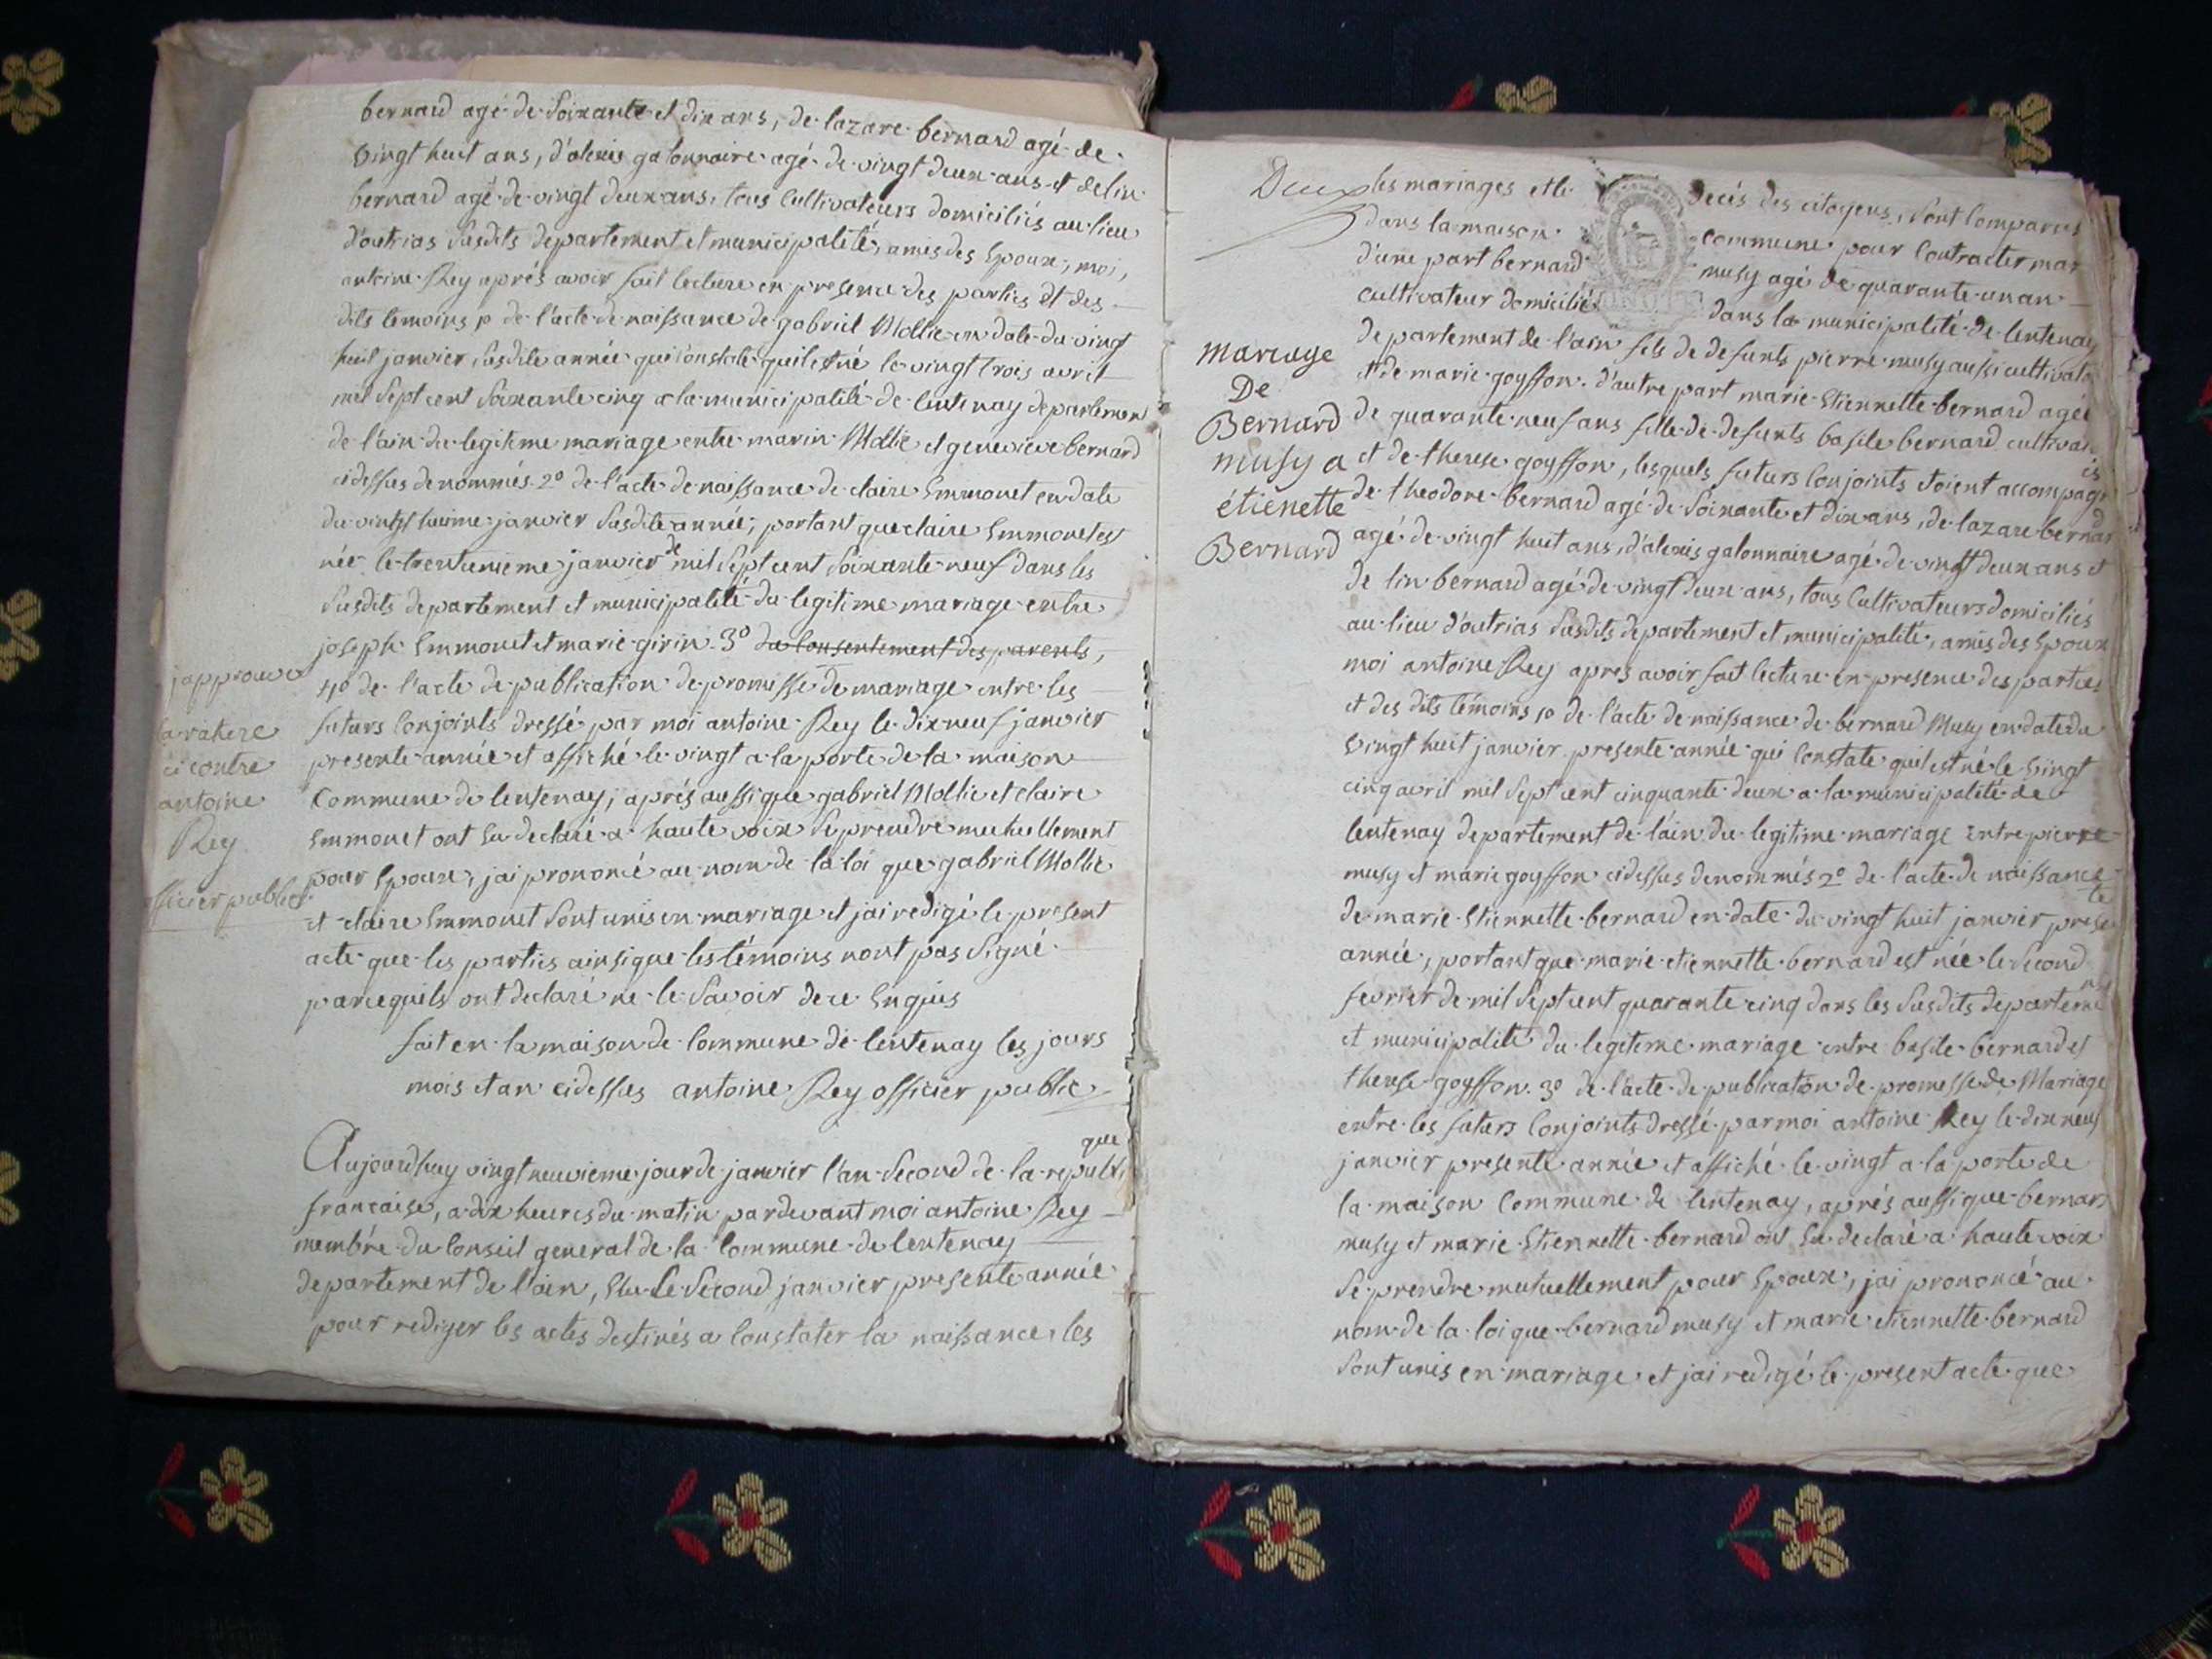 bernard agé de soixante et dix ans, de lazare bernard agé de
vingt huit ans, d'alexis galonnaire agé de vingt deux ans et de lin
bernard agé de vingt deux ans, tous cultivateurs domiciliés au lieu
d'outrias susdits departement et municipalité, amis des epoux, moi,
antoine Rey aprés avoir fait lecture en presence des parties et des
dits temoins 1º de l'acte de naissance de gabriel Mollie en date du vingt
huit janvier susdite année qui constate quil est né le vingt trois avril
mil sept cent soixante cinq a la municipalité de lentenay departement
de l'ain du legitime mariage entre marin Mollie et genevieve bernard
cidessus denommés 2º de l'acte de naissance de claire emmonet en date
du vingt huime janvier susdite année, portant que claire emmonet est
née le trentunieme janvier de mil sept cent soixante neuf dans les
susdits departement et municipalité du legitime mariage entre
joseph emmonet et marie girin 3º du consentement des parents,
4º de l'acte de publication de promesse de mariage entre les
futurs conjoints dressé par moi antoine Rey le dix neuf janvier
presente année et affiché le vingt a la porte de la maison
commune de lentenay, aprés aussi que gabriel Mollie et claire
emmonet ont eu declaré a haute voix se prendre mutuellement
pour epoux, jai prononcé au nom de la loi que gabriel Mollie
et claire emmonet sont unis en mariage et jai redigé le present
acte que les parties ainsi que les témoins nont pas signé
parcequils ont declaré ne le savoir de ce enquis
fait en la maison de commune de lentenay les jours
mois et an cidessus antoine Rey officier public
japprouve
la rature
ci contre
antoine
Rey
officier public
Aujourdhuy vingt neuvieme jour de janvier l'an second de la republique
française, a dix heures du matin pardevant moi antoine Rey
membre du conseil general de la commune de lentenay
departement de l'ain, elu le second janvier presente année
pour rediger les actes destinés a constater la naissance, les
Deux
les mariages et le decés des citoyens, sont comparus
dans la maison commune pour contracter mar
d'une part bernard musy agé de quarante un an
cultivateur domicilié dans la municipalité de lentenay
departement de l'ain fils de defunts pierre musy aussi cultivate
et de marie goyffon. d'autre part marie etiennette bernard agée
de quarante neuf ans fille de defunts basile bernard cultivat
et de therese goyffon, lesquels futurs conjoints etoient accompagnés
de theodore bernard agé de soixante et dix ans, de lazare bernard
agé de vingt huit ans, d'alexis galonnaire agé de vingt deux ans et
de lin bernard agé de vingt deux ans, tous cultivateurs domiciliés
au lieu d'outrias susdits departement et municipalité, amis des epoux
moi antoine Rey apres avoir fait lecture en presence des parties
et des dits témoins 1º de l'acte de naissance de bernard Musy en date du
vingt huit janvier presente année qui constate quil est né le vingt
cinq avril mil sept cent cinquante deux a la municipalité de
lentenay departement de l'ain du legitime mariage entre pierre
musy et marie goyffon cidessus denommés 2º de l'acte de naissance
de marie etiennette bernard en date du vingt huit janvier presente
année, portant que marie etiennette bernard est née le second
fevrier de mil sept cent quarante cinq dans les susdits departement
et municipalité du legitime mariage entre basile bernard et
therese goyffon. 3º de l'acte de publication de promesse de Mariage
entre les futurs conjoints dressé par moi antoine Rey le dix neuf
janvier presente année et affiché le vingt a la porte de
la maison commune de lentenay, aprés aussi que bernard
musy et marie etiennette bernard ont eu declaré a haute voix
se prendre mutuellement pour epoux, jai prononcé au
nom de la loi que bernard musy et marie etiennette bernard
sont unis en mariage et jai redigé le present acte que
Mariage
De
Bernard
musy a
étienette
Bernard